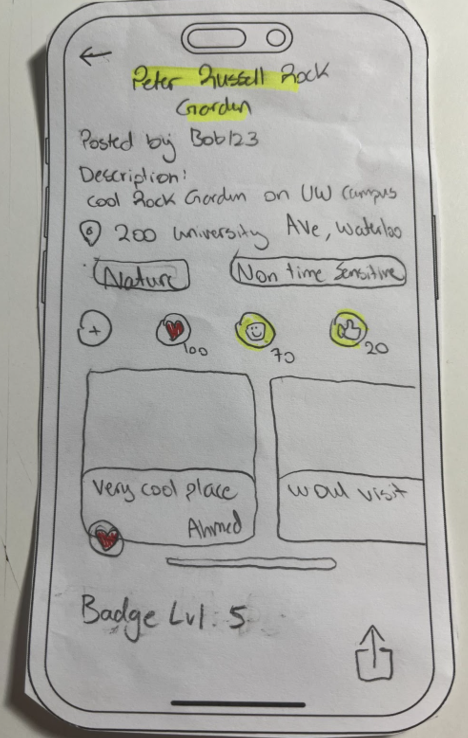 Peter Russell Rock
Garden
Posted by Bob123
Description:
cool Rock Garden on UW campus
200 university Ave, Waterloo
Nature
Non time Sensitive
+
100
70
20
Very cool place
Ahmed
woul visit
Badge Lvl: 5